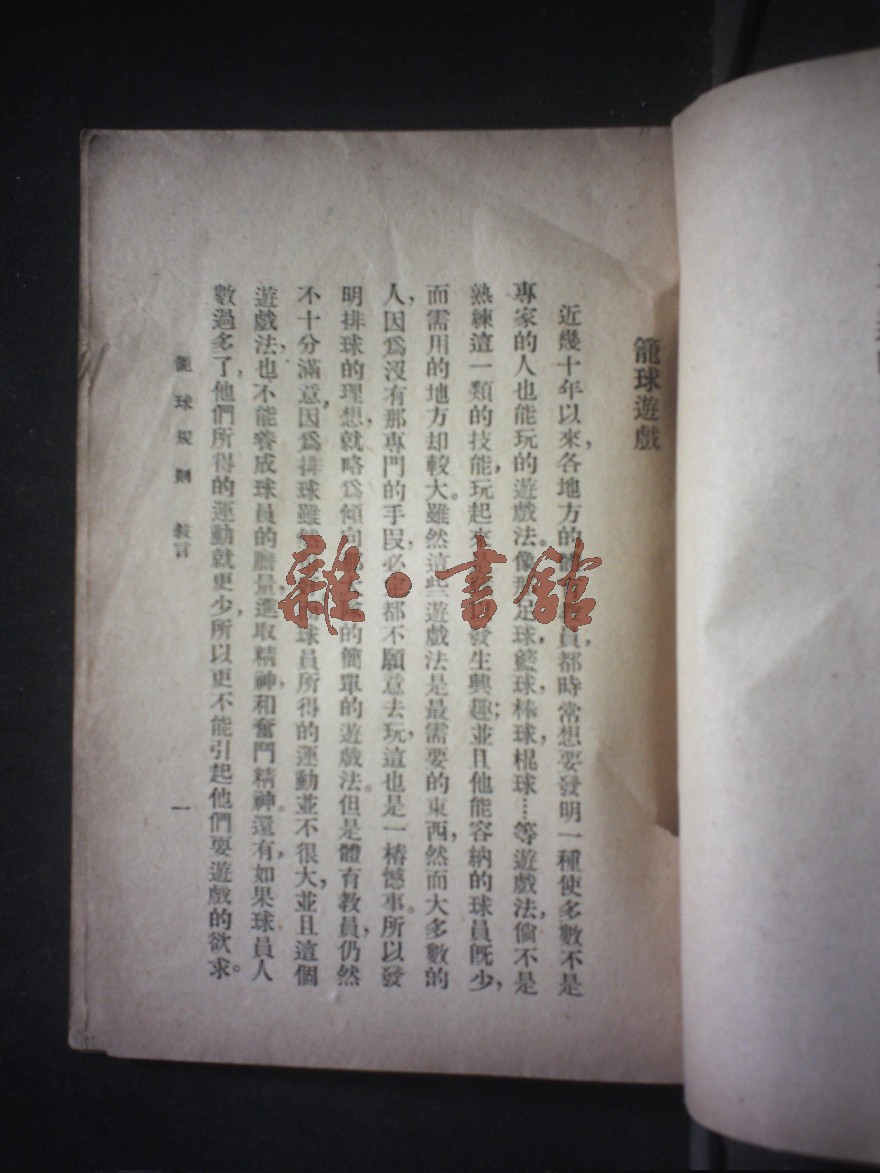 籠球遊戲
近幾十年以來，各地方的體員，都時常想要發明一種使多數不是
專家的人也能玩的遊戲法。像足球，籃球，棒球，棍球……等遊戲法，倘不是
熟練這一類的技能，玩起來發生興趣；並且他能容納的球員既少，
而需用的地方却較大。雖然這些遊戲法是最需要的東西，然而大多數的
人，因爲沒有那專門的手段，必都不願意去玩，這也是一樁憾事。所以發
明排球的理想，就略爲傾向的簡單的遊戲法。但是體育教員，仍然
不十分滿意，因爲排球雖球員所得的運動並不很大，並且這個
遊戲法，也不能養成球員的膽量，進取精神，和奮鬥精神。還有，如果球員人
數過多了，他們所得的運動就更少，所以更不能引起他們要遊戲的欲求。
籠球規則　敍言
一
雜·書館